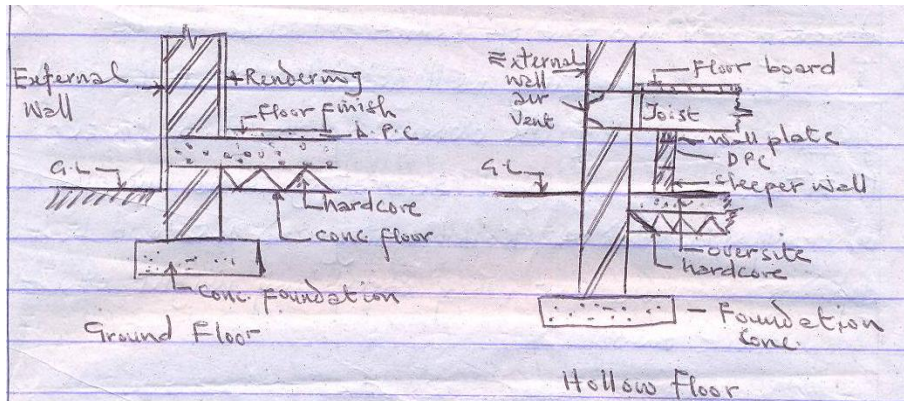 External
Wall
Rendering
Floor finish
D.P.C
G.L
hardcore
conc. floor
Conc. foundation
Ground Floor
External
wall
air
vent
Floor board
Joist
wall plate
DPC
Sleeper wall
G.L
oversite
hardcore
Foundation
Conc.
Hollow Floor